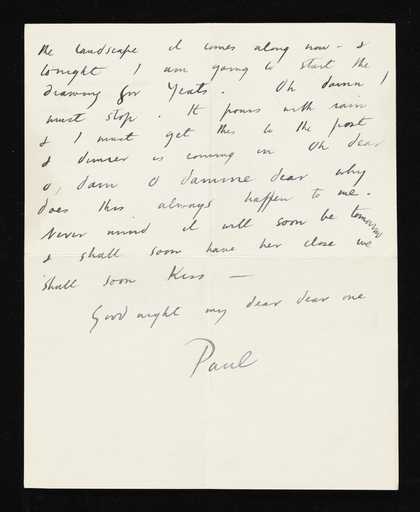 the landscape it comes along now - &
tonight I am going to start the
drawing for Yeats. Oh damn I
must stop. It pours with rain
& I must get this to the post
& dinner is coming in Oh dear
O, dam O damme dear why
does this always happen to me.
Never mind it will soon be tomorrow
& I shall soon have her close we
shall soon kiss —
Good night my dear dear one
Paul